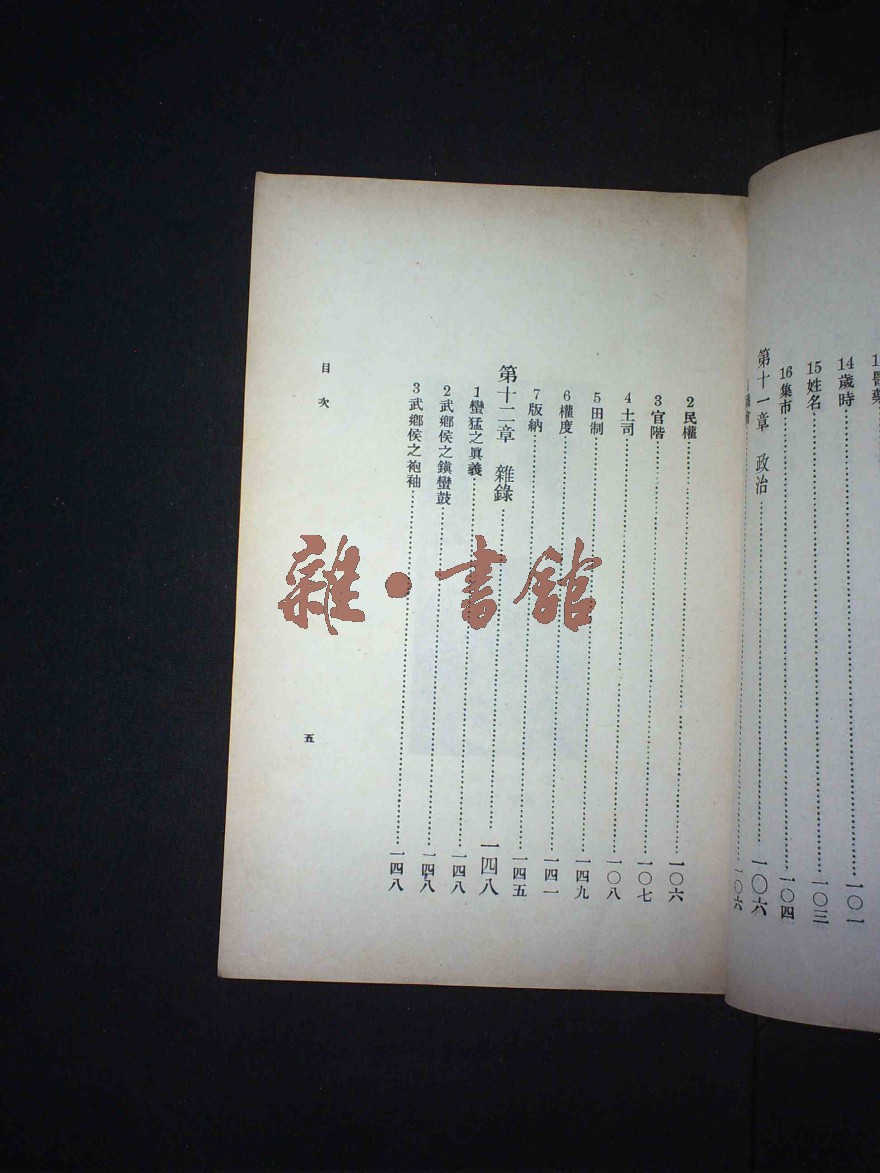 14歲時⋯⋯一〇一
15姓名⋯⋯一〇三
16集市⋯⋯一〇四
第十一章 政治⋯⋯一〇六
⋯⋯一〇六
2民權⋯⋯一〇六
3官階⋯⋯一〇七
4土司⋯⋯一〇八
5田制⋯⋯一四九
6權度⋯⋯一四一
7版納⋯⋯一四五
第十二章 雜錄⋯⋯一四八
1蠻猛之眞義⋯⋯一四八
2武鄉侯之鎭蠻鼓⋯⋯一四八
3武鄉侯之袍袖⋯⋯一四八
目次
五
雜·書館